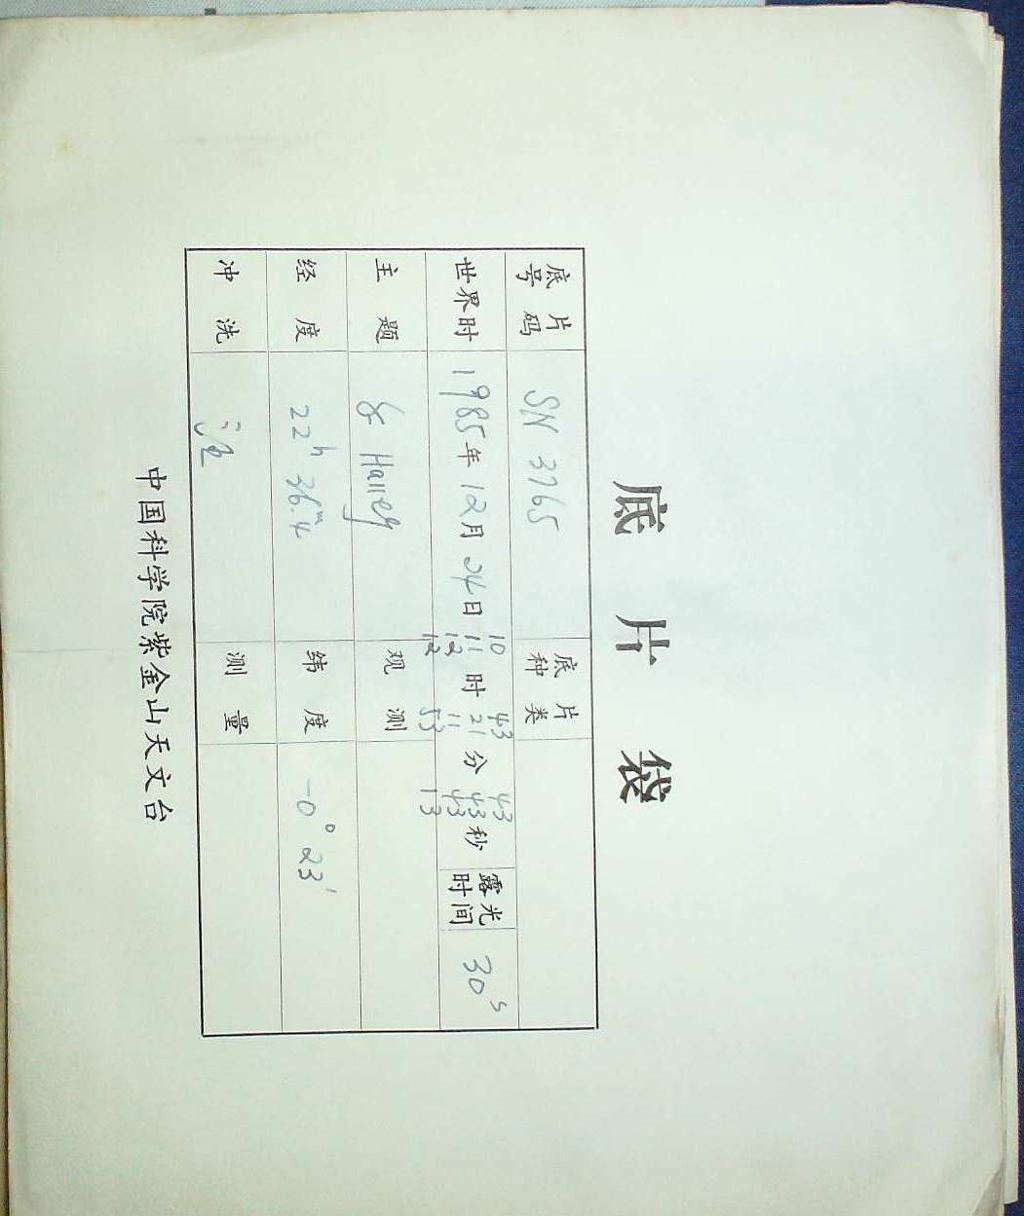 底片袋
底片号码 SN 3765 底片种类
世界时 1985年12月24日 10 11 12 12 时 43 21 11 53 分 43 43 43 13 秒 露光时间 30s
主题 Halley 观测
经度 22h 36m.4 纬度 -0° 23′
冲洗 测量
中国科学院紫金山天文台